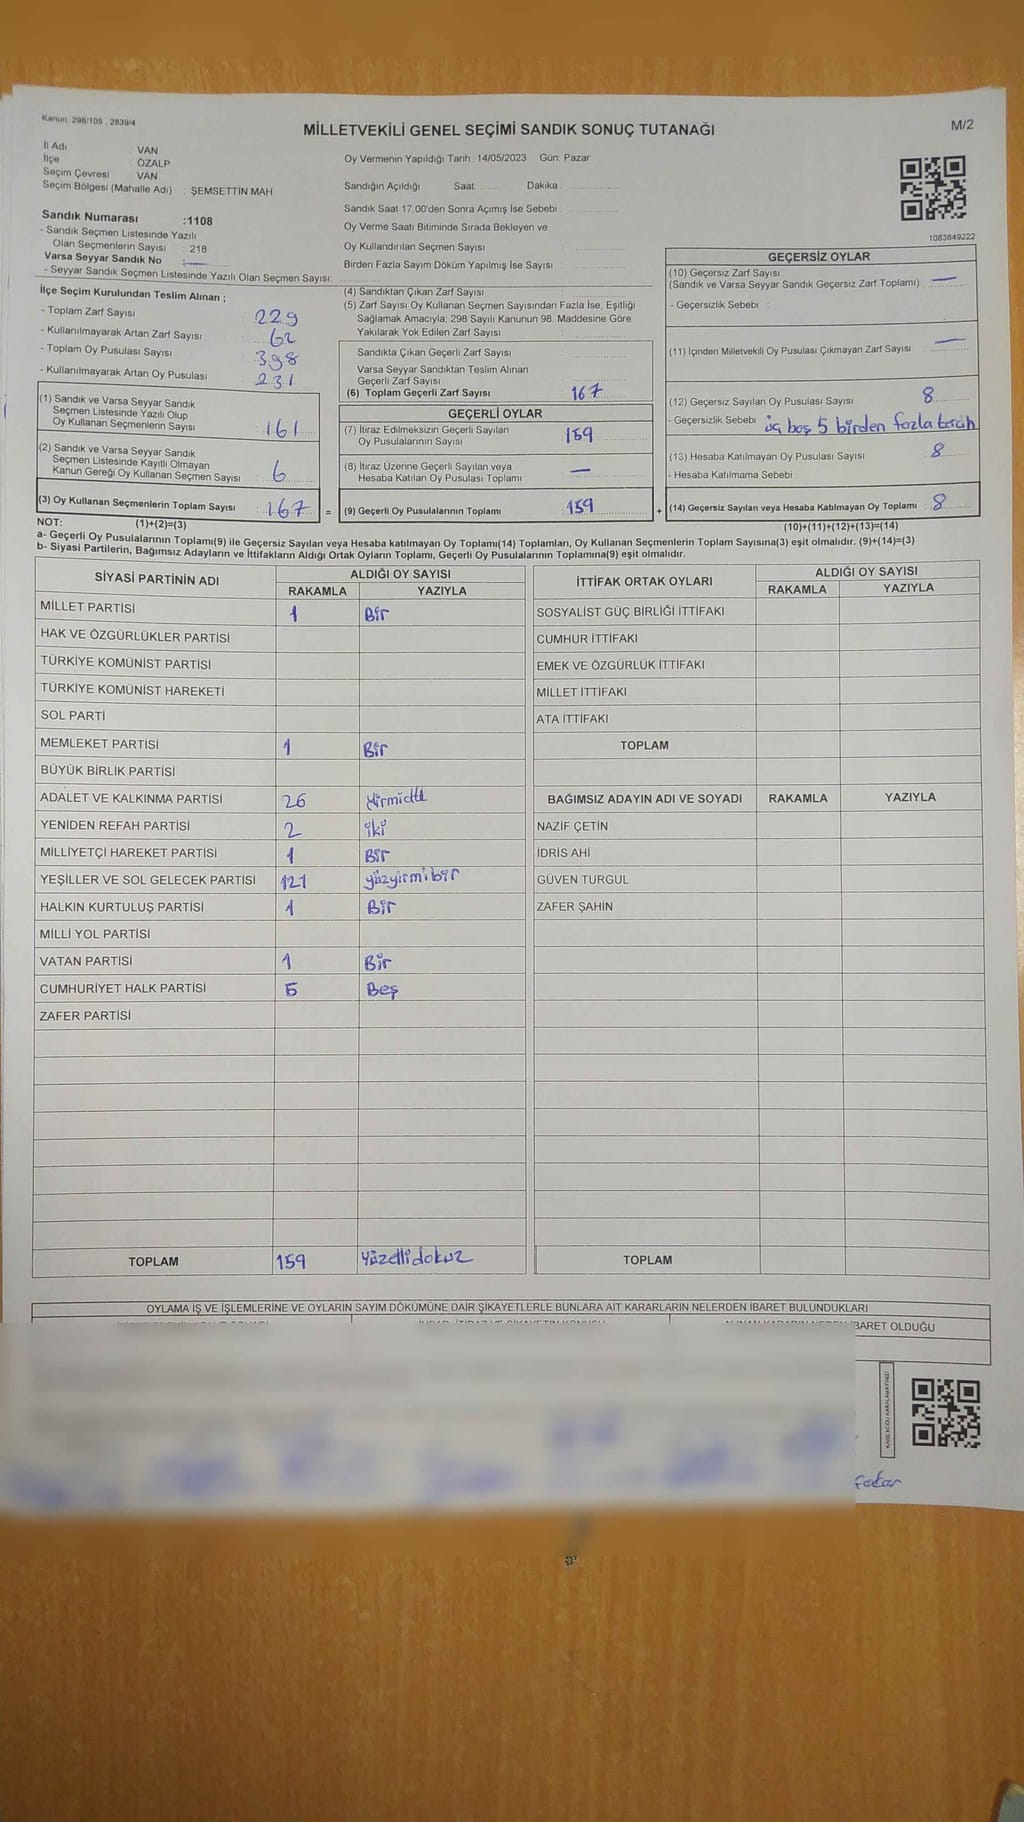 Kanun: 298/105 , 2839/4
MİLLETVEKİLİ GENEL SEÇİMİ SANDIK SONUÇ TUTANAĞI
M/2
İl Adı : VAN
İlçe : ÖZALP
Seçim Çevresi : VAN
Seçim Bölgesi (Mahalle Adı) : ŞEMSETTİN MAH
Sandık Numarası :1108
- Sandık Seçmen Listesinde Yazılı
Olan Seçmenlerin Sayısı : 218
Varsa Seyyar Sandık No : —
- Seyyar Sandık Seçmen Listesinde Yazılı Olan Seçmen Sayısı:
Oy Vermenin Yapıldığı Tarih : 14/05/2023 Gün: Pazar
Sandığın Açıldığı Saat Dakika :
Sandık Saat 17.00'den Sonra Açımış İse Sebebi :
Oy Verme Saati Bitiminde Sırada Bekleyen ve
Oy Kullandırılan Seçmen Sayısı :
Birden Fazla Sayım Döküm Yapılmış İse Sayısı :
1083849222
İlçe Seçim Kurulundan Teslim Alınan ;
- Toplam Zarf Sayısı : 229
- Kullanılmayarak Artan Zarf Sayısı : 62
- Toplam Oy Pusulası Sayısı : 398
- Kullanılmayarak Artan Oy Pusulası : 231
(1) Sandık ve Varsa Seyyar Sandık
Seçmen Listesinde Yazılı Olup
Oy Kullanan Seçmenlerin Sayısı : 161
(2) Sandık ve Varsa Seyyar Sandık
Seçmen Listesinde Kayıtlı Olmayan
Kanun Gereği Oy Kullanan Seçmen Sayısı : 6
(3) Oy Kullanan Seçmenlerin Toplam Sayısı : 167 =
(4) Sandıktan Çıkan Zarf Sayısı :
(5) Zarf Sayısı Oy Kullanan Seçmen Sayısından Fazla İse, Eşitliği
Sağlamak Amacıyla; 298 Sayılı Kanunun 98. Maddesine Göre
Yakılarak Yok Edilen Zarf Sayısı :
Sandıkta Çıkan Geçerli Zarf Sayısı :
Varsa Seyyar Sandıktan Teslim Alınan
Geçerli Zarf Sayısı :
(6) Toplam Geçerli Zarf Sayısı : 167
GEÇERLİ OYLAR
(7) İtiraz Edilmeksizin Geçerli Sayılan
Oy Pusulalarının Sayısı : 159
(8) İtiraz Üzerine Geçerli Sayılan veya
Hesaba Katılan Oy Pusulası Toplamı : —
(9) Geçerli Oy Pusulalarının Toplamı : 159 +
GEÇERSİZ OYLAR
(10) Geçersiz Zarf Sayısı
(Sandık ve Varsa Seyyar Sandık Geçersiz Zarf Toplamı) : —
- Geçersizlik Sebebi :
(11) İçinden Milletvekili Oy Pusulası Çıkmayan Zarf Sayısı : —
(12) Geçersiz Sayılan Oy Pusulası Sayısı : 8
- Geçersizlik Sebebi : üç boş 5 birden fazla tercih
(13) Hesaba Katılmayan Oy Pusulası Sayısı : 8
- Hesaba Katılmama Sebebi
(14) Geçersiz Sayılan veya Hesaba Katılmayan Oy Toplamı : 8
NOT: (1)+(2)=(3) (10)+(11)+(12)+(13)=(14)
a- Geçerli Oy Pusulalarının Toplamı(9) ile Geçersiz Sayılan veya Hesaba katılmayan Oy Toplamı(14) Toplamları, Oy Kullanan Seçmenlerin Toplam Sayısına(3) eşit olmalıdır. (9)+(14)=(3)
b- Siyasi Partilerin, Bağımsız Adayların ve İttifakların Aldığı Ortak Oyların Toplamı, Geçerli Oy Pusulalarının Toplamına(9) eşit olmalıdır.
SİYASİ PARTİNİN ADI ALDIĞI OY SAYISI
RAKAMLA YAZIYLA
MİLLET PARTİSİ 1 Bir
HAK VE ÖZGÜRLÜKLER PARTİSİ
TÜRKİYE KOMÜNİST PARTİSİ
TÜRKİYE KOMÜNİST HAREKETİ
SOL PARTİ
MEMLEKET PARTİSİ 1 Bir
BÜYÜK BİRLİK PARTİSİ
ADALET VE KALKINMA PARTİSİ 26
YENİDEN REFAH PARTİSİ 2 iki
MİLLİYETÇİ HAREKET PARTİSİ 1 Bir
YEŞİLLER VE SOL GELECEK PARTİSİ 121 yüzyirmibir
HALKIN KURTULUŞ PARTİSİ 1 Bir
MİLLİ YOL PARTİSİ
VATAN PARTİSİ 1 Bir
CUMHURİYET HALK PARTİSİ 5 Beş
ZAFER PARTİSİ
TOPLAM 159 Yüzellidokuz
İTTİFAK ORTAK OYLARI ALDIĞI OY SAYISI
RAKAMLA YAZIYLA
SOSYALİST GÜÇ BİRLİĞİ İTTİFAKI
CUMHUR İTTİFAKI
EMEK VE ÖZGÜRLÜK İTTİFAKI
MİLLET İTTİFAKI
ATA İTTİFAKI
TOPLAM
BAĞIMSIZ ADAYIN ADI VE SOYADI RAKAMLA YAZIYLA
NAZİF ÇETİN
İDRİS AHİ
GÜVEN TURGUL
ZAFER ŞAHİN
TOPLAM
OYLAMA İŞ VE İŞLEMLERİNE VE OYLARIN SAYIM DÖKÜMÜNE DAİR ŞİKAYETLERLE BUNLARA AİT KARARLARIN NELERDEN İBARET BULUNDUKLARI
OLDUĞU
KARE KODU KARALAMAYINIZ!